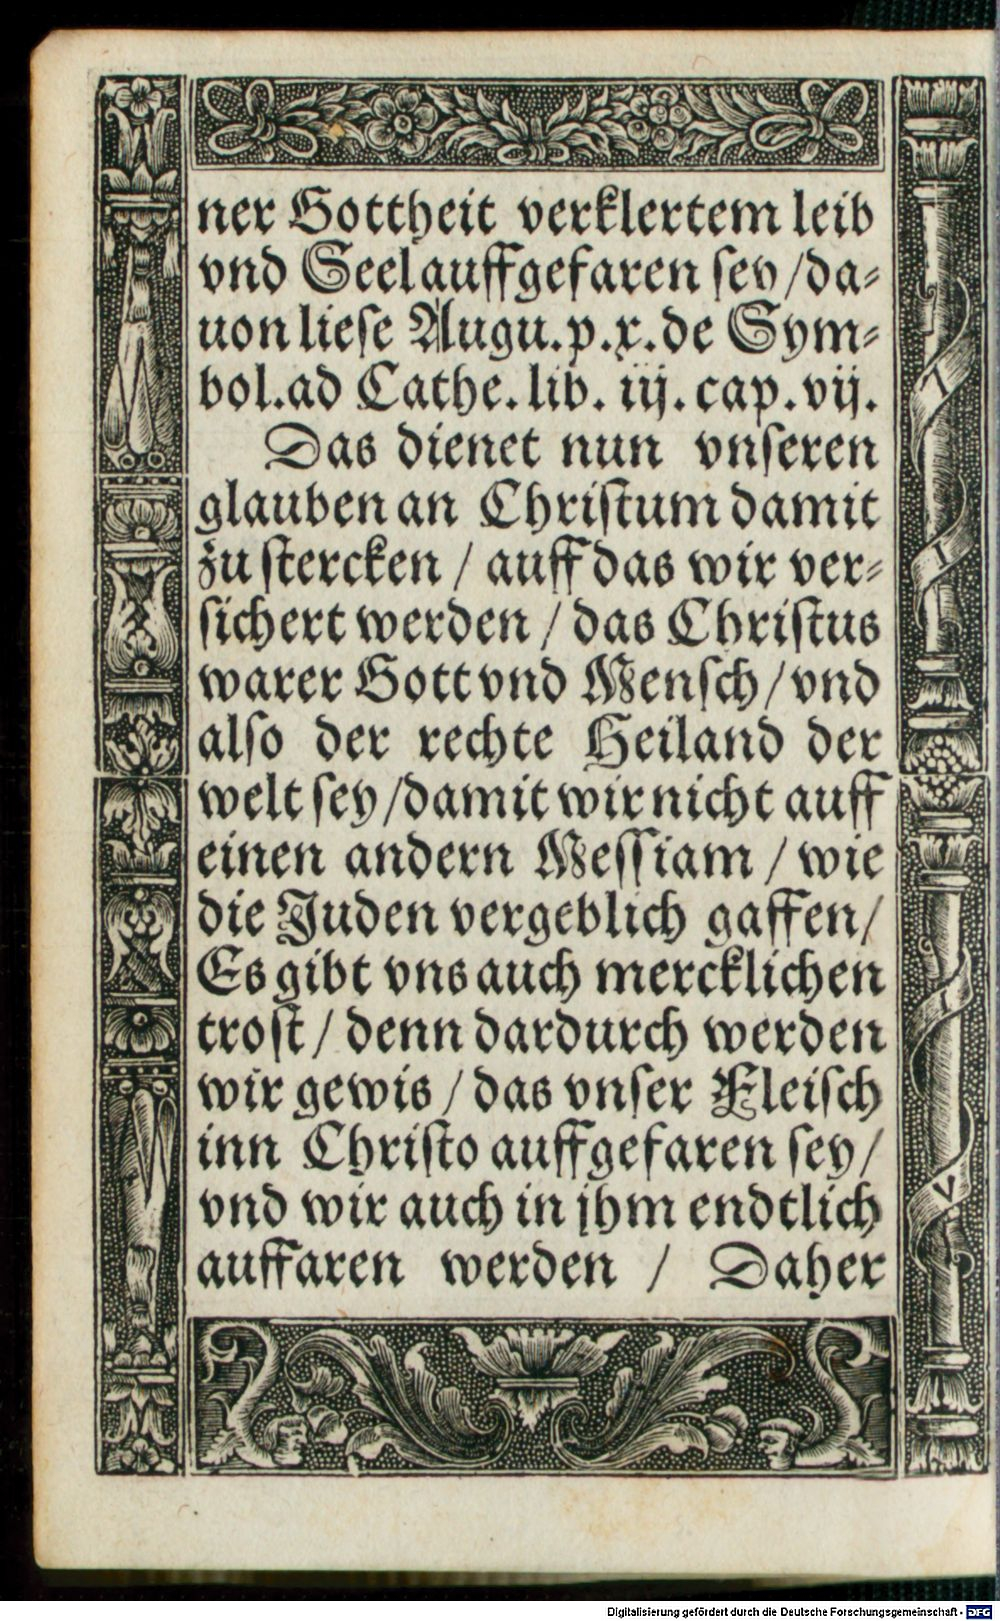 ner Gottheit verklertem leib
vnd Seel auffgefaren sey / da⸗
uon liese Augu. p. x. de Sym⸗
bol. ad Cathe. lib. iij. cap. vij.
Das dienet nun vnseren
glauben an Christum damit
zu stercken / auff das wir ver⸗
sichert werden / das Christus
warer Gott vnd Mensch / vnd
also der rechte Heiland der
welt sey / damit wir nicht auff
einen andern Messiam / wie
die Juden vergeblich gaffen /
Es gibt vns auch mercklichen
trost / denn dardurch werden
wir gewis / das vnser Fleisch
inn Christo auffgefaren sey /
vnd wir auch in jhm endtlich
auffaren werden / Daher
Digitalisierung gefördert durch die Deutsche Forschungsgemeinschaft - DFG